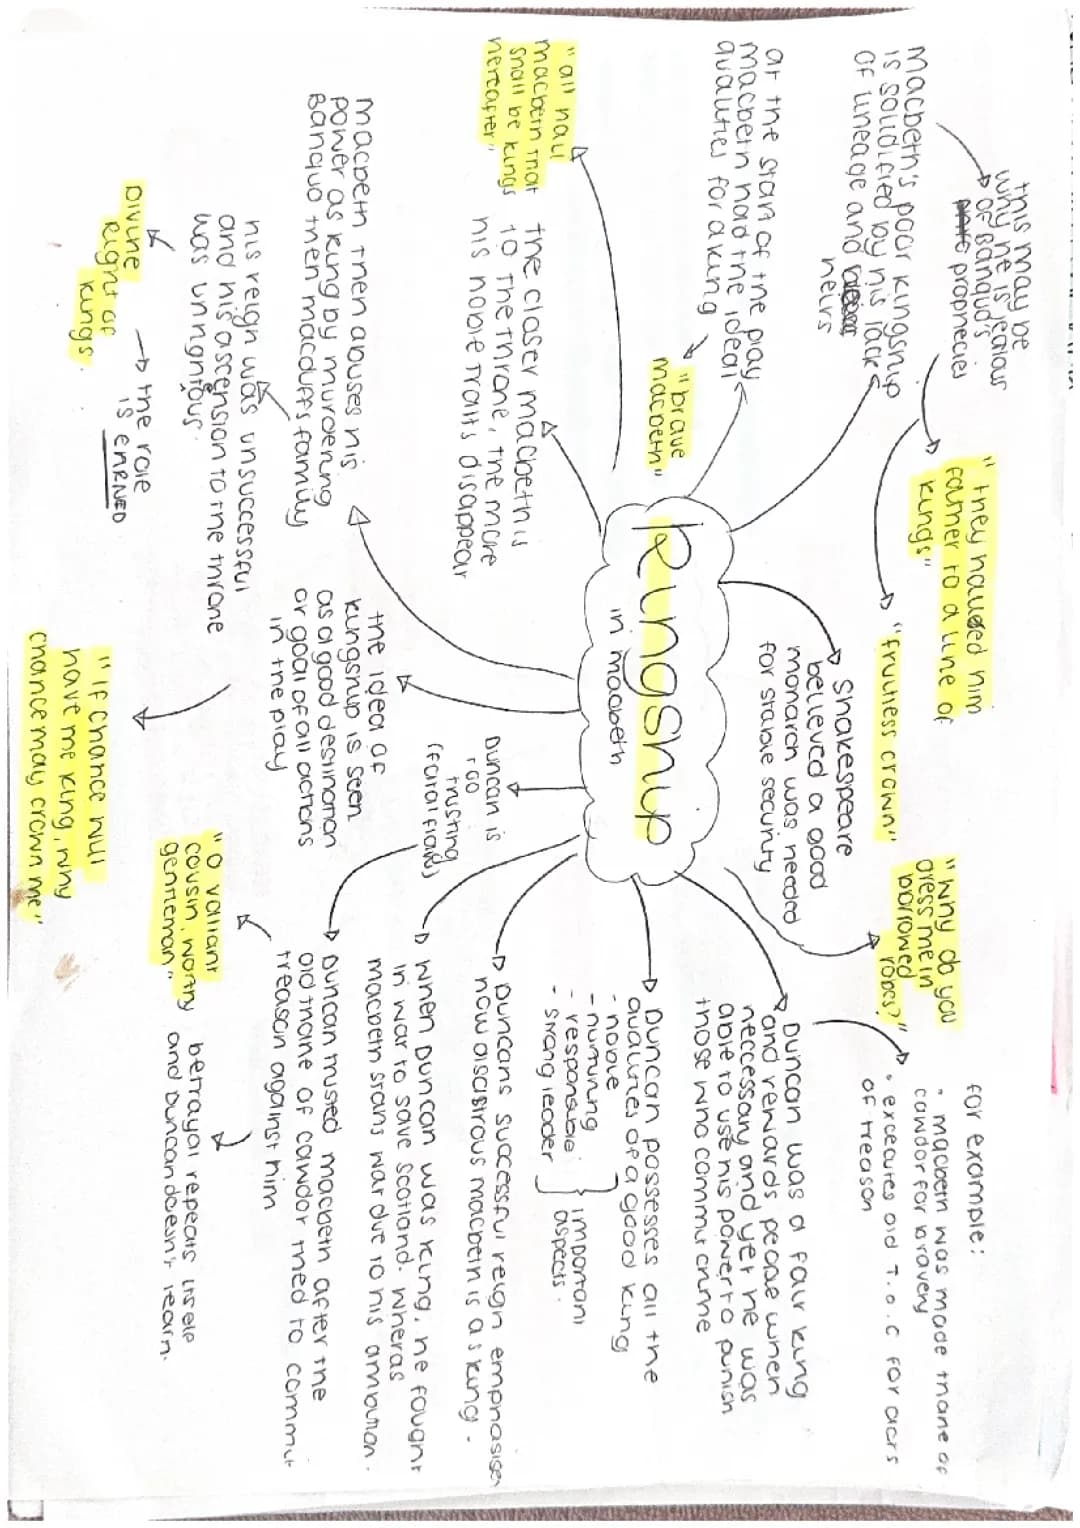 this may be
why he is jealous
of Banquo's
prophecies
Macbeth's poor kingship
is solidified by his lack
of lineage and
heirs
"they hailed him
father to a line of
kings"
"fruitless crown"
at the start of the play
macbeth had the ideal
qualities for a king
"brave
macbeth"
"all hail
macbeth that
shall be kings
hereafter"
the closer macbeth is
to the throne, the more
his noble traits disappear
macbeth then abuses his
power as king by murdering
Banquo then macduffs family
his reign was unsuccessful
and his ascension to the throne
was unrightous.
Divine
Right of
kings.
the role
is ENRNED
"If chance will
have me king, why
chance may crown me"
Kingship
in macbeth
Shakespeare
believed a good
monarch was needed
for stable security
the idea of
kingship is seen
as a good destination
or goal of all actions
in the play
Duncan is
too
trusting
(fatal flaw)
"Why do you
dress me in
borrowed
robes?"
for example:
• macbeth was made thane of
cawdor for bravery
• excecutes old T.o.C for acts
of treason
Duncan was a fair king
and rewards people when
neccessary and yet he was
able to use his power to punish
those who commit crime
Duncan possesses all the
qualities of a good king
- noble
- nurturing
- responsible
- strong leader
important
aspects.
Duncans successful reign emphasises
how disastrous macbeth is as king.
When Duncan was king, he fought
in war to save Scotland. wheras
macbeth starts war due to his ambition.
Duncan trusted macbeth after the
old thane of cawdor tried to commit
treason against him
"O valliant
cousin, worthy
gentleman"
betrayal repeats itself
and Duncan doesn't learn.